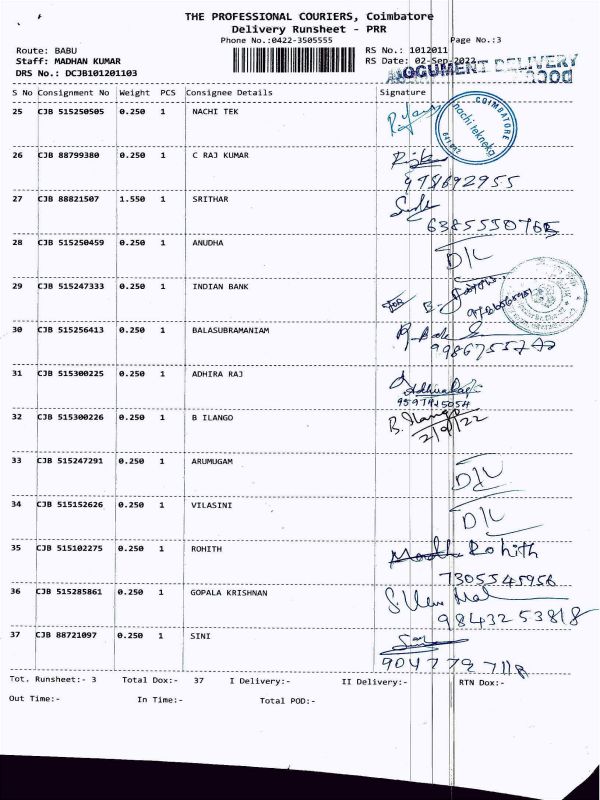 THE PROFESSIONAL COURIERS, Coimbatore
Delivery Runsheet - PRR
Phone No.:0422-3505555 Page No.:3
Route: BABU RS No.: 1012011
Staff: MADHAN KUMAR RS Date: 02-Sep-2022
DRS No.: DCJB101201103
DOCUMENT DELIVERY
S No Consignment No Weight PCS Consignee Details Signature
25 CJB 515250505 0.250 1 NACHI TEK
COIMBATORE
nachi tekneka
26 CJB 88799380 0.250 1 C RAJ KUMAR
27 CJB 88821507 1.550 1 SRITHAR
28 CJB 515250459 0.250 1 ANUDHA D/L
29 CJB 515247333 0.250 1 INDIAN BANK
30 CJB 515256413 0.250 1 BALASUBRAMANIAM
31 CJB 515300225 0.250 1 ADHIRA RAJ
32 CJB 515300226 0.250 1 B ILANGO B. Ilango
2/9/22
33 CJB 515247291 0.250 1 ARUMUGAM D/L
34 CJB 515152626 0.250 1 VILASINI D/L
35 CJB 515102275 0.250 1 ROHITH Rohith
36 CJB 515285861 0.250 1 GOPALA KRISHNAN
9843253818
37 CJB 88721097 0.250 1 SINI
Tot. Runsheet:- 3 Total Dox:- 37 I Delivery:- II Delivery:- RTN Dox:-
Out Time:- In Time:- Total POD:-